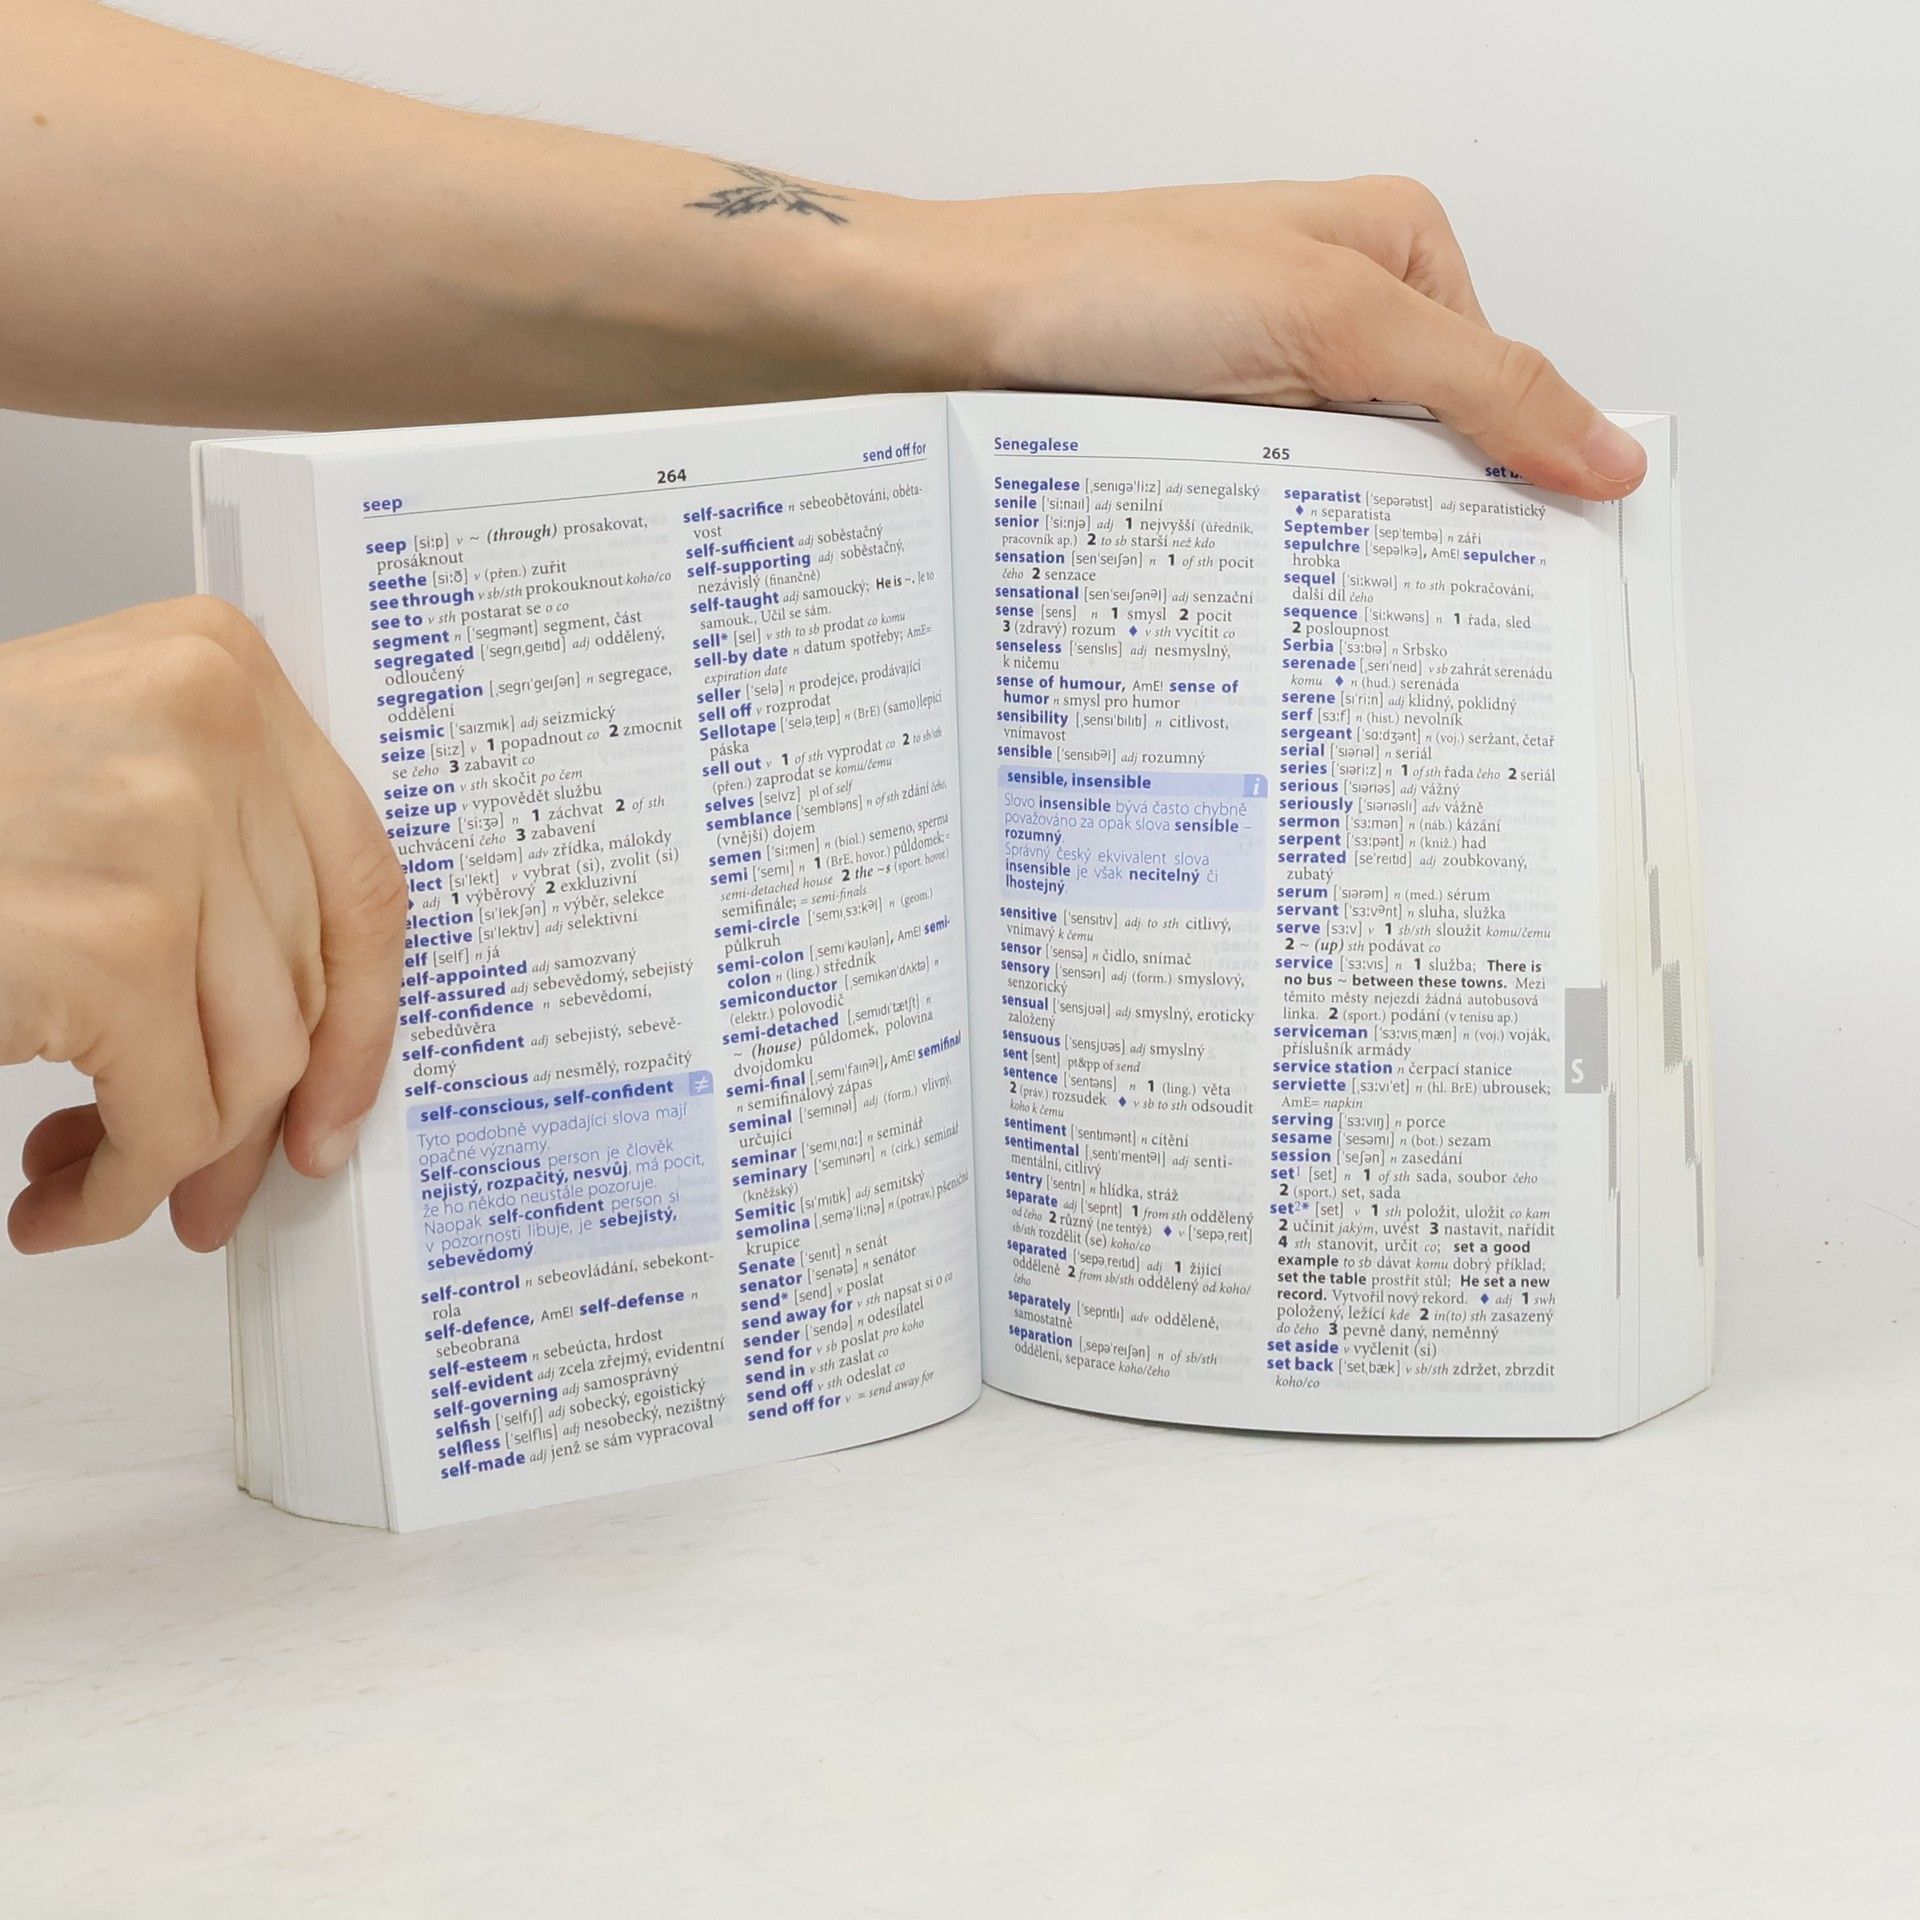 seep
264
send off for
seep [si:p] v ~ (through) prosakovat,
prosáknout
seethe [si:ð] v (přen.) zuřit
see through v sb/sth prokouknout koho/co
see to v sth postarat se o co
segment n ['segmənt] segment, část
segregated ['segrɪˌgeɪtɪd] adj oddělený,
odloučený
segregation [ˌsegrɪ'geɪʃən] n segregace,
oddělení
seismic ['saɪzmɪk] adj seizmický
seize [si:z] v 1 popadnout co 2 zmocnit
se čeho 3 zabavit co
seize on v sth skočit po čem
seize up v vypovědět službu
seizure ['si:ʒə] n 1 záchvat 2 of sth
uchvácení čeho 3 zabavení
eldom ['seldəm] adv zřídka, málokdy
lect [sɪ'lekt] v vybrat (si), zvolit (si)
♦ adj 1 výběrový 2 exkluzivní
election [sɪ'lekʃən] n výběr, selekce
elective [sɪ'lektɪv] adj selektivní
elf [self] n já
self-appointed adj samozvaný
self-assured adj sebevědomý, sebejistý
self-confidence n sebevědomí,
sebedůvěra
self-confident adj sebejistý, sebevě-
domý
self-conscious adj nesmělý, rozpačitý
self-conscious, self-confident ≠
Tyto podobně vypadající slova mají
opačné významy.
Self-conscious person je člověk
nejistý, rozpačitý, nesvůj, má pocit,
že ho někdo neustále pozoruje.
Naopak self-confident person si
v pozornosti libuje, je sebejistý,
sebevědomý.
self-control n sebeovládání, sebekont-
rola
self-defence, AmE! self-defense n
sebeobrana
self-esteem n sebeúcta, hrdost
self-evident adj zcela zřejmý, evidentní
self-governing adj samosprávný
selfish ['selfɪʃ] adj sobecký, egoistický
selfless ['selflɪs] adj nesobecký, nezištný
self-made adj jenž se sám vypracoval
self-sacrifice n sebeobětování, oběta-
vost
self-sufficient adj soběstačný
self-supporting adj soběstačný,
nezávislý (finančně)
self-taught adj samoucký; He is ~. Je to
samouk., Učil se sám.
sell* [sel] v sth to sb prodat co komu
sell-by date n datum spotřeby; AmE=
expiration date
seller ['selə] n prodejce, prodávající
sell off v rozprodat
Sellotape ['seləˌteɪp] n (BrE) (samo)lepicí
páska
sell out v 1 of sth vyprodat co 2 to sb/sth
(přen.) zaprodat se komu/čemu
selves [selvz] pl of self
semblance ['sembləns] n of sth zdání čeho,
(vnější) dojem
semen ['si:men] n (biol.) semeno, sperma
semi ['semɪ] n 1 (BrE, hovor.) půldomek; =
semi-detached house 2 the ~s (sport. hovor.)
semifinále; = semi-finals
semi-circle ['semɪˌsɜ:kəl] n (geom.)
půlkruh
semi-colon [ˌsemɪ'kəʊlən], AmE! semi-
colon n (ling.) středník
semiconductor [ˌsemɪkən'dʌktə] n
(elektr.) polovodič
semi-detached [ˌsemɪdɪ'tætʃt] n
~ (house) půldomek, polovina
dvojdomku
semi-final [ˌsemɪ'faɪnəl], AmE! semifinal
n semifinálový zápas
seminal ['semɪnəl] adj (form.) vlivný,
určující
seminar ['semɪˌnɑ:] n seminář
seminary ['semɪnərɪ] n (círk.) seminář
(kněžský)
Semitic [sɪ'mɪtɪk] adj semitský
semolina [ˌsemə'li:nə] n (potrav.) pšeničná
krupice
Senate ['senɪt] n senát
senator ['senətə] n senátor
send* [send] v poslat
send away for v sth napsat si o co
sender ['sendə] n odesílatel
send for v sb poslat pro koho
send in v sth zaslat co
send off v sth odeslat co
send off for v = send away for
Senegalese
265
set
Senegalese [ˌsenɪgə'li:z] adj senegalský
senile ['si:naɪl] adj senilní
senior ['si:njə] adj 1 nejvyšší (úředník,
pracovník ap.) 2 to sb starší než kdo
sensation [sen'seɪʃən] n 1 of sth pocit
čeho 2 senzace
sensational [sen'seɪʃənəl] adj senzační
sense [sens] n 1 smysl 2 pocit
3 (zdravý) rozum ♦ v sth vycítit co
senseless ['senslɪs] adj nesmyslný,
k ničemu
sense of humour, AmE! sense of
humor n smysl pro humor
sensibility [ˌsensɪ'bɪlɪtɪ] n citlivost,
vnímavost
sensible ['sensɪbəl] adj rozumný
sensible, insensible i
Slovo insensible bývá často chybně
považováno za opak slova sensible –
rozumný.
Správný český ekvivalent slova
insensible je však necitelný či
lhostejný.
sensitive ['sensɪtɪv] adj to sth citlivý,
vnímavý k čemu
sensor ['sensə] n čidlo, snímač
sensory ['sensərɪ] adj (form.) smyslový,
senzorický
sensual ['sensjʊəl] adj smyslný, eroticky
založený
sensuous ['sensjʊəs] adj smyslný
sent [sent] pt&pp of send
sentence ['sentəns] n 1 (ling.) věta
2 (práv.) rozsudek ♦ v sb to sth odsoudit
koho k čemu
sentiment ['sentɪmənt] n cítění
sentimental [ˌsentɪ'mentəl] adj senti-
mentální, citlivý
sentry ['sentrɪ] n hlídka, stráž
separate adj ['seprɪt] 1 from sth oddělený
od čeho 2 různý (ne tentýž) ♦ v ['sepəˌreɪt]
sb/sth rozdělit (se) koho/co
separated ['sepəˌreɪtɪd] adj 1 žijící
odděleně 2 from sb/sth oddělený od koho/
čeho
separately ['seprɪtlɪ] adv odděleně,
samostatně
separation [ˌsepə'reɪʃən] n of sb/sth
oddělení, separace koho/čeho
separatist ['sepərətɪst] adj separatistický
♦ n separatista
September [sep'tembə] n září
sepulchre ['sepəlkə], AmE! sepulcher n
hrobka
sequel ['si:kwəl] n to sth pokračování,
další díl čeho
sequence ['si:kwəns] n 1 řada, sled
2 posloupnost
Serbia ['sɜ:bɪə] n Srbsko
serenade [ˌserɪ'neɪd] v sb zahrát serenádu
komu ♦ n (hud.) serenáda
serene [sɪ'ri:n] adj klidný, poklidný
serf [sɜ:f] n (hist.) nevolník
sergeant ['sɑ:dʒənt] n (voj.) seržant, četař
serial ['sɪərɪəl] n seriál
series ['sɪəri:z] n 1 of sth řada čeho 2 seriál
serious ['sɪərɪəs] adj vážný
seriously ['sɪərɪəslɪ] adv vážně
sermon ['sɜ:mən] n (náb.) kázání
serpent ['sɜ:pənt] n (kniž.) had
serrated [se'reɪtɪd] adj zoubkovaný,
zubatý
serum ['sɪərəm] n (med.) sérum
servant ['sɜ:vənt] n sluha, služka
serve [sɜ:v] v 1 sb/sth sloužit komu/čemu
2 ~ (up) sth podávat co
service ['sɜ:vɪs] n 1 služba; There is
no bus ~ between these towns. Mezi
těmito městy nejezdí žádná autobusová
linka. 2 (sport.) podání (v tenisu ap.)
serviceman ['sɜ:vɪsˌmæn] n (voj.) voják,
příslušník armády
service station n čerpací stanice
serviette [ˌsɜ:vɪ'et] n (hl. BrE) ubrousek;
AmE= napkin
serving ['sɜ:vɪŋ] n porce
sesame ['sesəmɪ] n (bot.) sezam
session ['seʃən] n zasedání
set¹ [set] n 1 of sth sada, soubor čeho
2 (sport.) set, sada
set²* [set] v 1 sth položit, uložit co kam
2 učinit jakým, uvést 3 nastavit, nařídit
4 sth stanovit, určit co; set a good
example to sb dávat komu dobrý příklad;
set the table prostřít stůl; He set a new
record. Vytvořil nový rekord. ♦ adj 1 swh
položený, ležící kde 2 in(to) sth zasazený
do čeho 3 pevně daný, neměnný
set aside v vyčlenit (si)
set back ['setˌbæk] v sb/sth zdržet, zbrzdit
koho/co
S